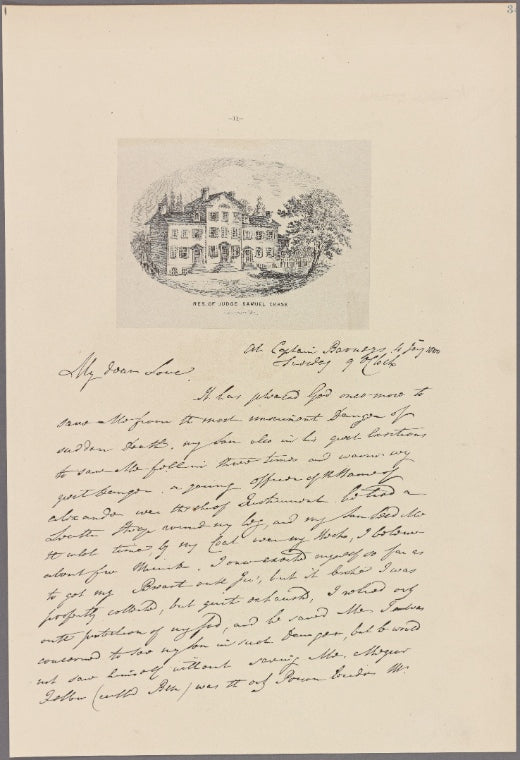 -12-
RES. OF JUDGE SAMUEL CHASE
At Captain Barneys, 4 Jany 1800
Saturday 9 oClock
My dear Love
It has pleased God once more to
save Me from the most imminent Danger of
sudden death. my son also in his great exertions
to save Me fell in three times and was in very
great Danger. a young officer of the Name of
Alexander was the chief Instrument he tied a
round my leg, and my Son held Me
by my Coat near my Neck, I believe
about five Minutes. I now exerted myself so far as
to get my Breast on the Ice, but it broke I was
perfectly collected, but quite exhausted, I relied only
on the protection of my God, and he saved Me. I was
concerned to see my son in such Danger, but he would
not save himself without saving Me. Negro
(called Ben) was the only Person besides Mr.